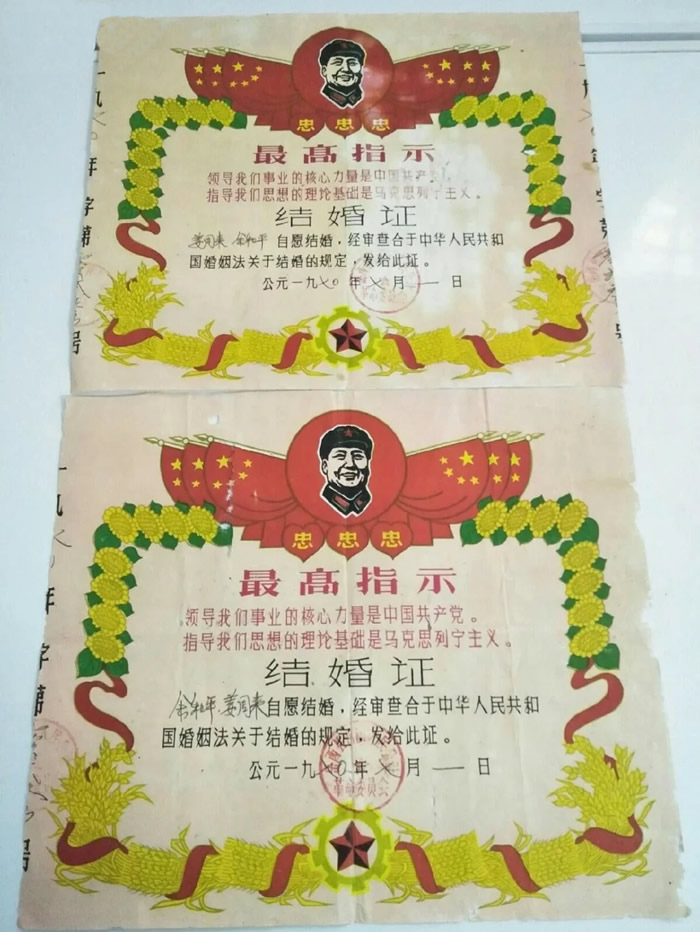 忠 忠 忠
最高指示
领导我们事业的核心力量是中国共产党。
指导我们思想的理论基础是马克思列宁主义。
结婚证
姜周来 余和平 自愿结婚，经审查合于中华人民共和
国婚姻法关于结婚的规定，发给此证。
公元一九七〇年 月 一 日
年字第
号
忠 忠 忠
最高指示
领导我们事业的核心力量是中国共产党。
指导我们思想的理论基础是马克思列宁主义。
结婚证
余和平 姜周来 自愿结婚，经审查合于中华人民共和
国婚姻法关于结婚的规定，发给此证。
公元一九七〇年 月 一 日
革命委员会
一九七〇年字第
号